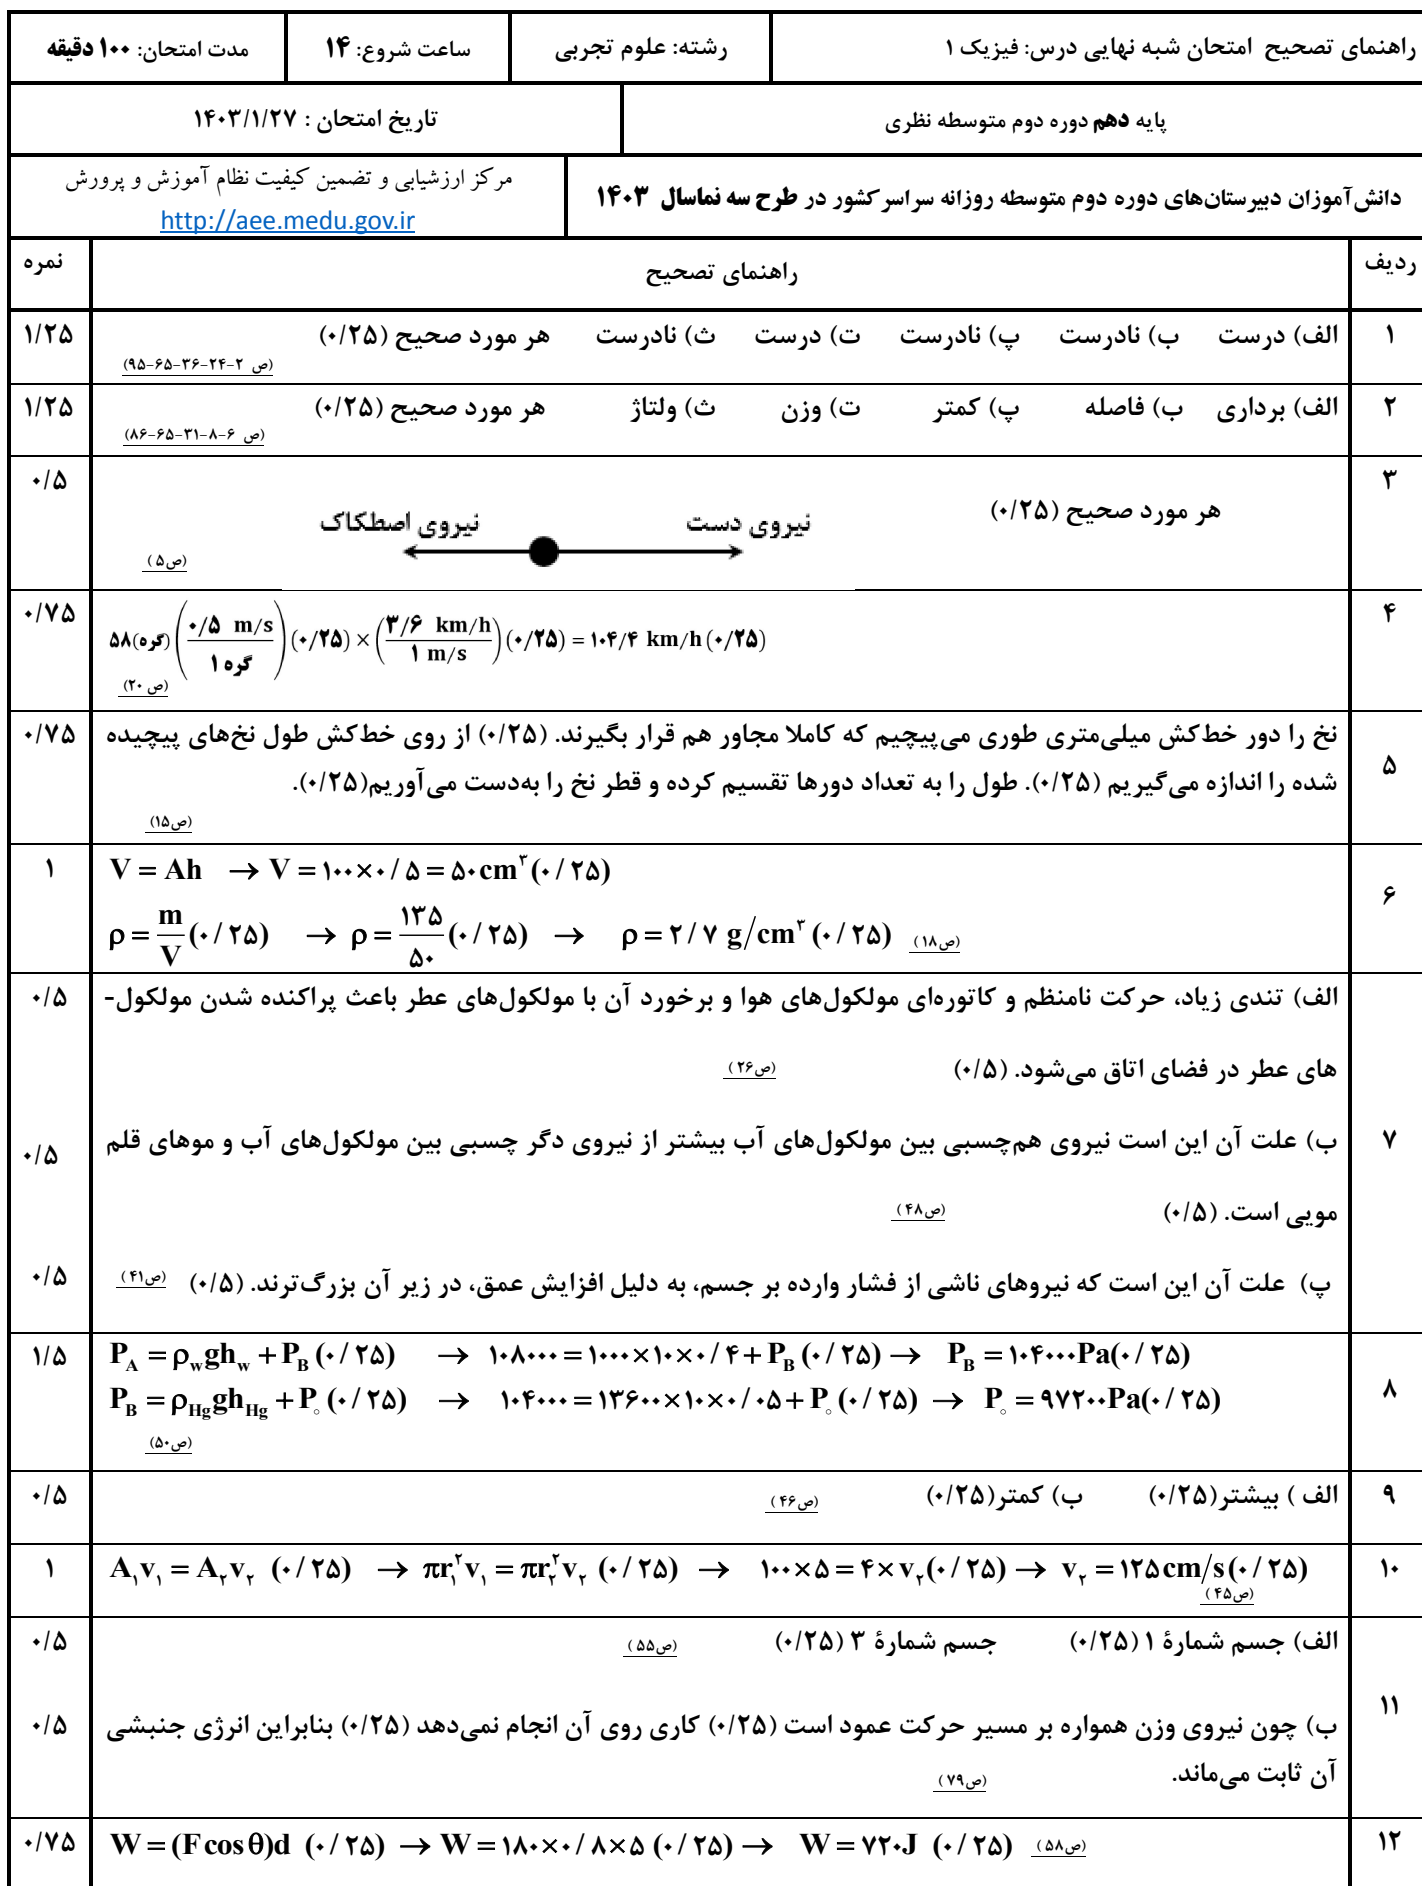 راهنمای تصحیح امتحان شبه نهایی درس: فیزیک ۱ رشته: علوم تجربی ساعت شروع: ۱۴ مدت امتحان: ۱۰۰ دقیقه
پایه دهم دوره دوم متوسطه نظری تاریخ امتحان : ۱۴۰۳/۱/۲۷
دانش‌آموزان دبیرستان‌های دوره دوم متوسطه روزانه سراسر کشور در طرح سه نماسال ۱۴۰۳ مرکز ارزشیابی و تضمین کیفیت نظام آموزش و پرورش
http://aee.medu.gov.ir
ردیف راهنمای تصحیح نمره
۱ الف) درست ب) نادرست پ) نادرست ت) درست ث) نادرست هر مورد صحیح (۰/۲۵) ۱/۲۵
(ص ۲-۲۴-۳۶-۶۵-۹۵)
۲ الف) برداری ب) فاصله پ) کمتر ت) وزن ث) ولتاژ هر مورد صحیح (۰/۲۵) ۱/۲۵
(ص ۶-۸-۳۱-۶۵-۸۶)
۳ هر مورد صحیح (۰/۲۵) نیروی دست نیروی اصطکاک ۰/۵
(ص۵)
۴ ۵۸(گره)(۰/۵ m/s / ۱ گره)(۰/۲۵)×(۳/۶ km/h / ۱ m/s)(۰/۲۵) = ۱۰۴/۴ km/h (۰/۲۵) ۰/۷۵
(ص ۲۰)
۵ نخ را دور خط‌کش میلی‌متری طوری می‌پیچیم که کاملا مجاور هم قرار بگیرند. (۰/۲۵) از روی خط‌کش طول نخ‌های پیچیده ۰/۷۵
شده را اندازه می‌گیریم (۰/۲۵). طول را به تعداد دورها تقسیم کرده و قطر نخ را به‌دست می‌آوریم(۰/۲۵).
(ص۱۵)
۶ V = Ah → V = ۱۰۰×۰/۵ = ۵۰ cm³ (۰/۲۵) ۱
ρ = m/V (۰/۲۵) → ρ = ۱۳۵/۵۰ (۰/۲۵) → ρ = ۲/۷ g/cm³ (۰/۲۵) (ص۱۸)
۷ الف) تندی زیاد، حرکت نامنظم و کاتوره‌ای مولکول‌های هوا و برخورد آن با مولکول‌های عطر باعث پراکنده شدن مولکول- ۰/۵
های عطر در فضای اتاق می‌شود. (۰/۵) (ص۲۶)
ب) علت آن این است نیروی هم‌چسبی بین مولکول‌های آب بیشتر از نیروی دگر چسبی بین مولکول‌های آب و موهای قلم ۰/۵
مویی است. (۰/۵) (ص۴۸)
پ) علت آن این است که نیروهای ناشی از فشار وارده بر جسم، به دلیل افزایش عمق، در زیر آن بزرگ‌ترند. (۰/۵) (ص۴۱) ۰/۵
۸ P_A = ρ_w gh_w + P_B (۰/۲۵) → ۱۰۸۰۰۰ = ۱۰۰۰×۱۰×۰/۴ + P_B (۰/۲۵) → P_B = ۱۰۴۰۰۰Pa(۰/۲۵) ۱/۵
P_B = ρ_Hg gh_Hg + P_۰ (۰/۲۵) → ۱۰۴۰۰۰ = ۱۳۶۰۰×۱۰×۰/۰۵ + P_۰ (۰/۲۵) → P_۰ = ۹۷۲۰۰Pa(۰/۲۵)
(ص۵۰)
۹ الف ) بیشتر(۰/۲۵) ب) کمتر(۰/۲۵) (ص۴۶) ۰/۵
۱۰ A₁v₁ = A₂v₂ (۰/۲۵) → πr₁²v₁ = πr₂²v₂ (۰/۲۵) → ۱۰۰×۵ = ۴×v₂(۰/۲۵) → v₂ = ۱۲۵ cm/s (۰/۲۵) ۱
(ص۴۵)
۱۱ الف) جسم شمارهٔ ۱ (۰/۲۵) جسم شمارهٔ ۳ (۰/۲۵) (ص۵۵) ۰/۵
ب) چون نیروی وزن همواره بر مسیر حرکت عمود است (۰/۲۵) کاری روی آن انجام نمی‌دهد (۰/۲۵) بنابراین انرژی جنبشی ۰/۵
آن ثابت می‌ماند. (ص۷۹)
۱۲ W = (F cos θ)d (۰/۲۵) → W = ۱۸۰×۰/۸×۵ (۰/۲۵) → W = ۷۲۰J (۰/۲۵) (ص۵۸) ۰/۷۵